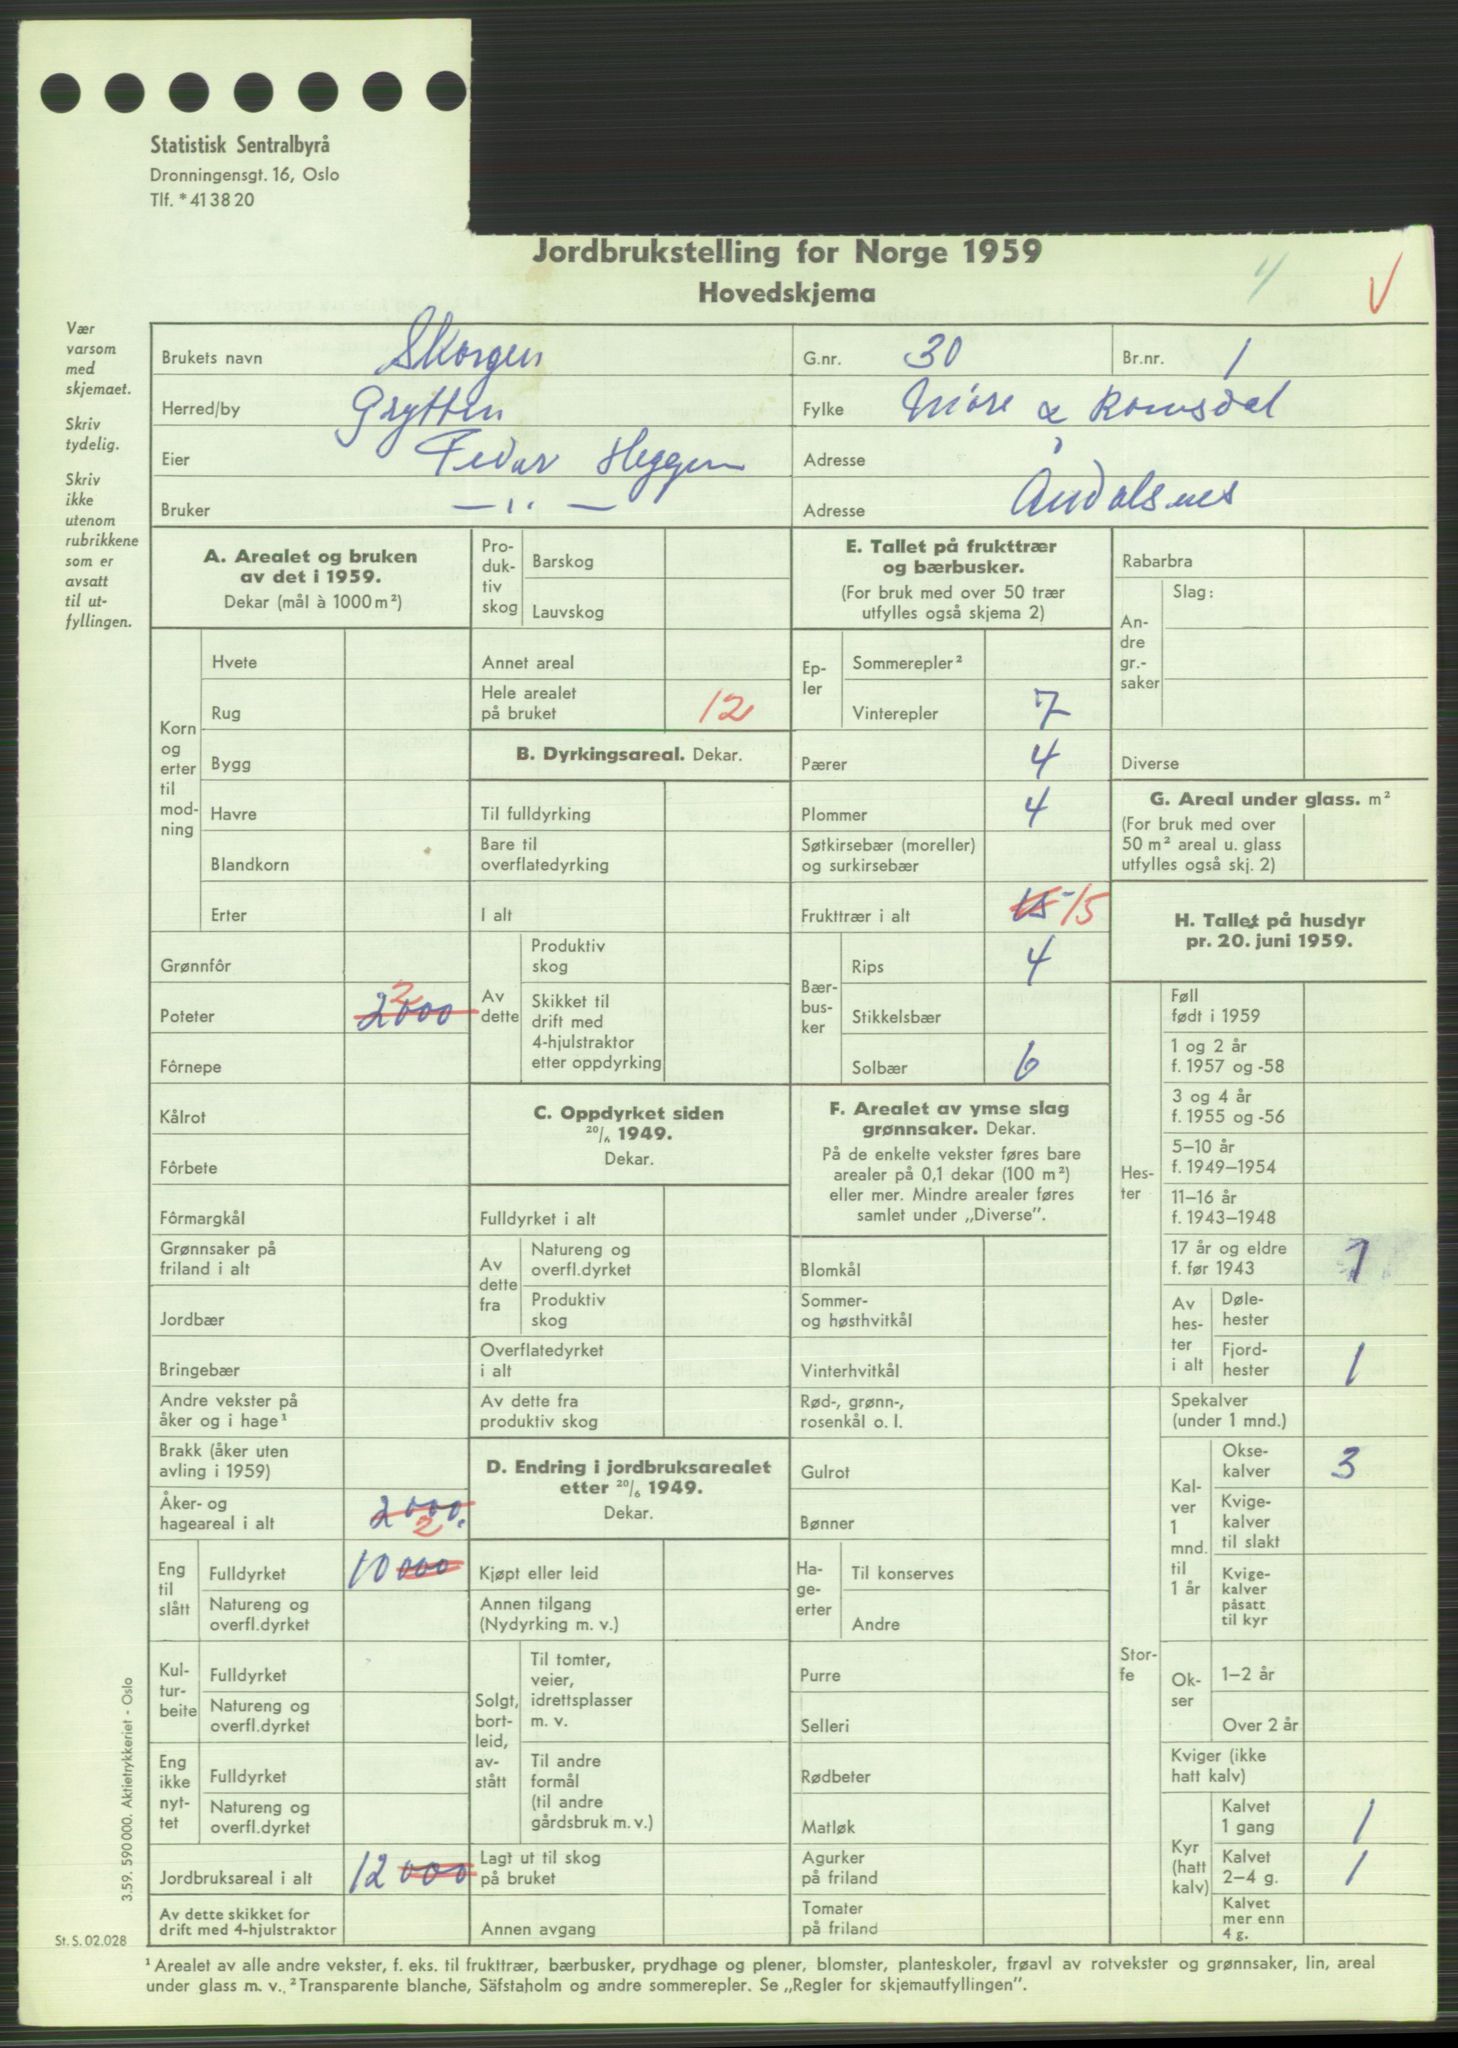 Statistisk Sentralbyrå
Dronningensgt. 16, Oslo
Tlf. * 41 38 20
Jordbrukstelling for Norge 1959
Hovedskjema
4 V
Vær
varsom
med
skjemaet.
Skriv
tydelig.
Skriv
ikke
utenom
rubrikkene
som er
avsatt
til ut-
fyllingen.
Brukets navn Skorgen G.nr. 30 Br.nr. 1
Herred/by Grytten Fylke Møre & Romsdal
Eier Pedar Heggem Adresse
Bruker — " — Adresse Åndalsnes
A. Arealet og bruken
av det i 1959.
Dekar (mål à 1000 m²)
Korn
og
erter
til
mod-
ning
Hvete
Rug
Bygg
Havre
Blandkorn
Erter
Grønnfôr
Poteter 2000 2
Fôrnepe
Kålrot
Fôrbete
Fôrmargkål
Grønnsaker på
friland i alt
Jordbær
Bringebær
Andre vekster på
åker og i hage¹
Brakk (åker uten
avling i 1959)
Åker- og
hageareal i alt 2000. 2
Eng
til
slått
Fulldyrket 10 000
Natureng og
overfl.dyrket
Kul-
tur-
beite
Fulldyrket
Natureng og
overfl.dyrket
Eng
ikke
nyt-
tet
Fulldyrket
Natureng og
overfl.dyrket
Jordbruksareal i alt 12 000
Av dette skikket for
drift med 4-hjulstraktor
Pro-
duk-
tiv
skog
Barskog
Lauvskog
Annet areal
Hele arealet
på bruket 12
B. Dyrkingsareal. Dekar.
Til fulldyrking
Bare til
overflatedyrking
I alt
Av
dette
Produktiv
skog
Skikket til
drift med
4-hjulstraktor
etter oppdyrking
C. Oppdyrket siden
20/6 1949.
Dekar.
Fulldyrket i alt
Av
dette
fra
Natureng og
overfl.dyrket
Produktiv
skog
Overflatedyrket
i alt
Av dette fra
produktiv skog
D. Endring i jordbruksarealet
etter 20/6 1949.
Dekar.
Kjøpt eller leid
Annen tilgang
(Nydyrking m. v.)
Solgt,
bort-
leid,
av-
stått
Til tomter,
veier,
idrettsplasser
m. v.
Til andre
formål
(til andre
gårdsbruk m. v.)
Lagt ut til skog
på bruket
Annen avgang
E. Tallet på frukttrær
og bærbusker.
(For bruk med over 50 trær
utfylles også skjema 2)
Ep-
ler
Sommerepler²
Vinterepler 7
Pærer 4
Plommer 4
Søtkirsebær (moreller)
og surkirsebær
Frukttrær i alt 15 15
Bær-
bus-
ker
Rips 4
Stikkelsbær
Solbær 6
F. Arealet av ymse slag
grønnsaker. Dekar.
På de enkelte vekster føres bare
arealer på 0,1 dekar (100 m²)
eller mer. Mindre arealer føres
samlet under „Diverse”.
Blomkål
Sommer-
og høsthvitkål
Vinterhvitkål
Rød-, grønn-,
rosenkål o. l.
Gulrot
Bønner
Ha-
ge-
erter
Til konserves
Andre
Purre
Selleri
Rødbeter
Matløk
Agurker
på friland
Tomater
på friland
Rabarbra
An-
dre
gr.-
saker
Slag:
Diverse
G. Areal under glass. m²
(For bruk med over
50 m² areal u. glass
utfylles også skj. 2)
H. Tallet på husdyr
pr. 20. juni 1959.
Hes-
ter
Føll
født i 1959
1 og 2 år
f. 1957 og -58
3 og 4 år
f. 1955 og -56
5–10 år
f. 1949–1954
11–16 år
f. 1943–1948
17 år og eldre
f. før 1943 1
Av
hes-
ter
i alt
Døle-
hester
Fjord-
hester 1
Stor-
fe
Spekalver
(under 1 mnd.)
Kal-
ver
1
mnd.
til
1 år
Okse-
kalver 3
Kvige-
kalver
til slakt
Kvige-
kalver
påsatt
til kyr
Ok-
ser
1–2 år
Over 2 år
Kviger (ikke
hatt kalv)
Kyr
(hatt
kalv)
Kalvet
1 gang 1
Kalvet
2–4 g. 1
Kalvet
mer enn
4 g.
3.59. 590 000. Aktietrykkeriet - Oslo
St. S. 02.028
¹ Arealet av alle andre vekster, f. eks. til frukttrær, bærbusker, prydhage og plener, blomster, planteskoler, frøavl av rotvekster og grønnsaker, lin, areal
under glass m. v. ² Transparente blanche, Säfstaholm og andre sommerepler. Se „Regler for skjemautfyllingen”.